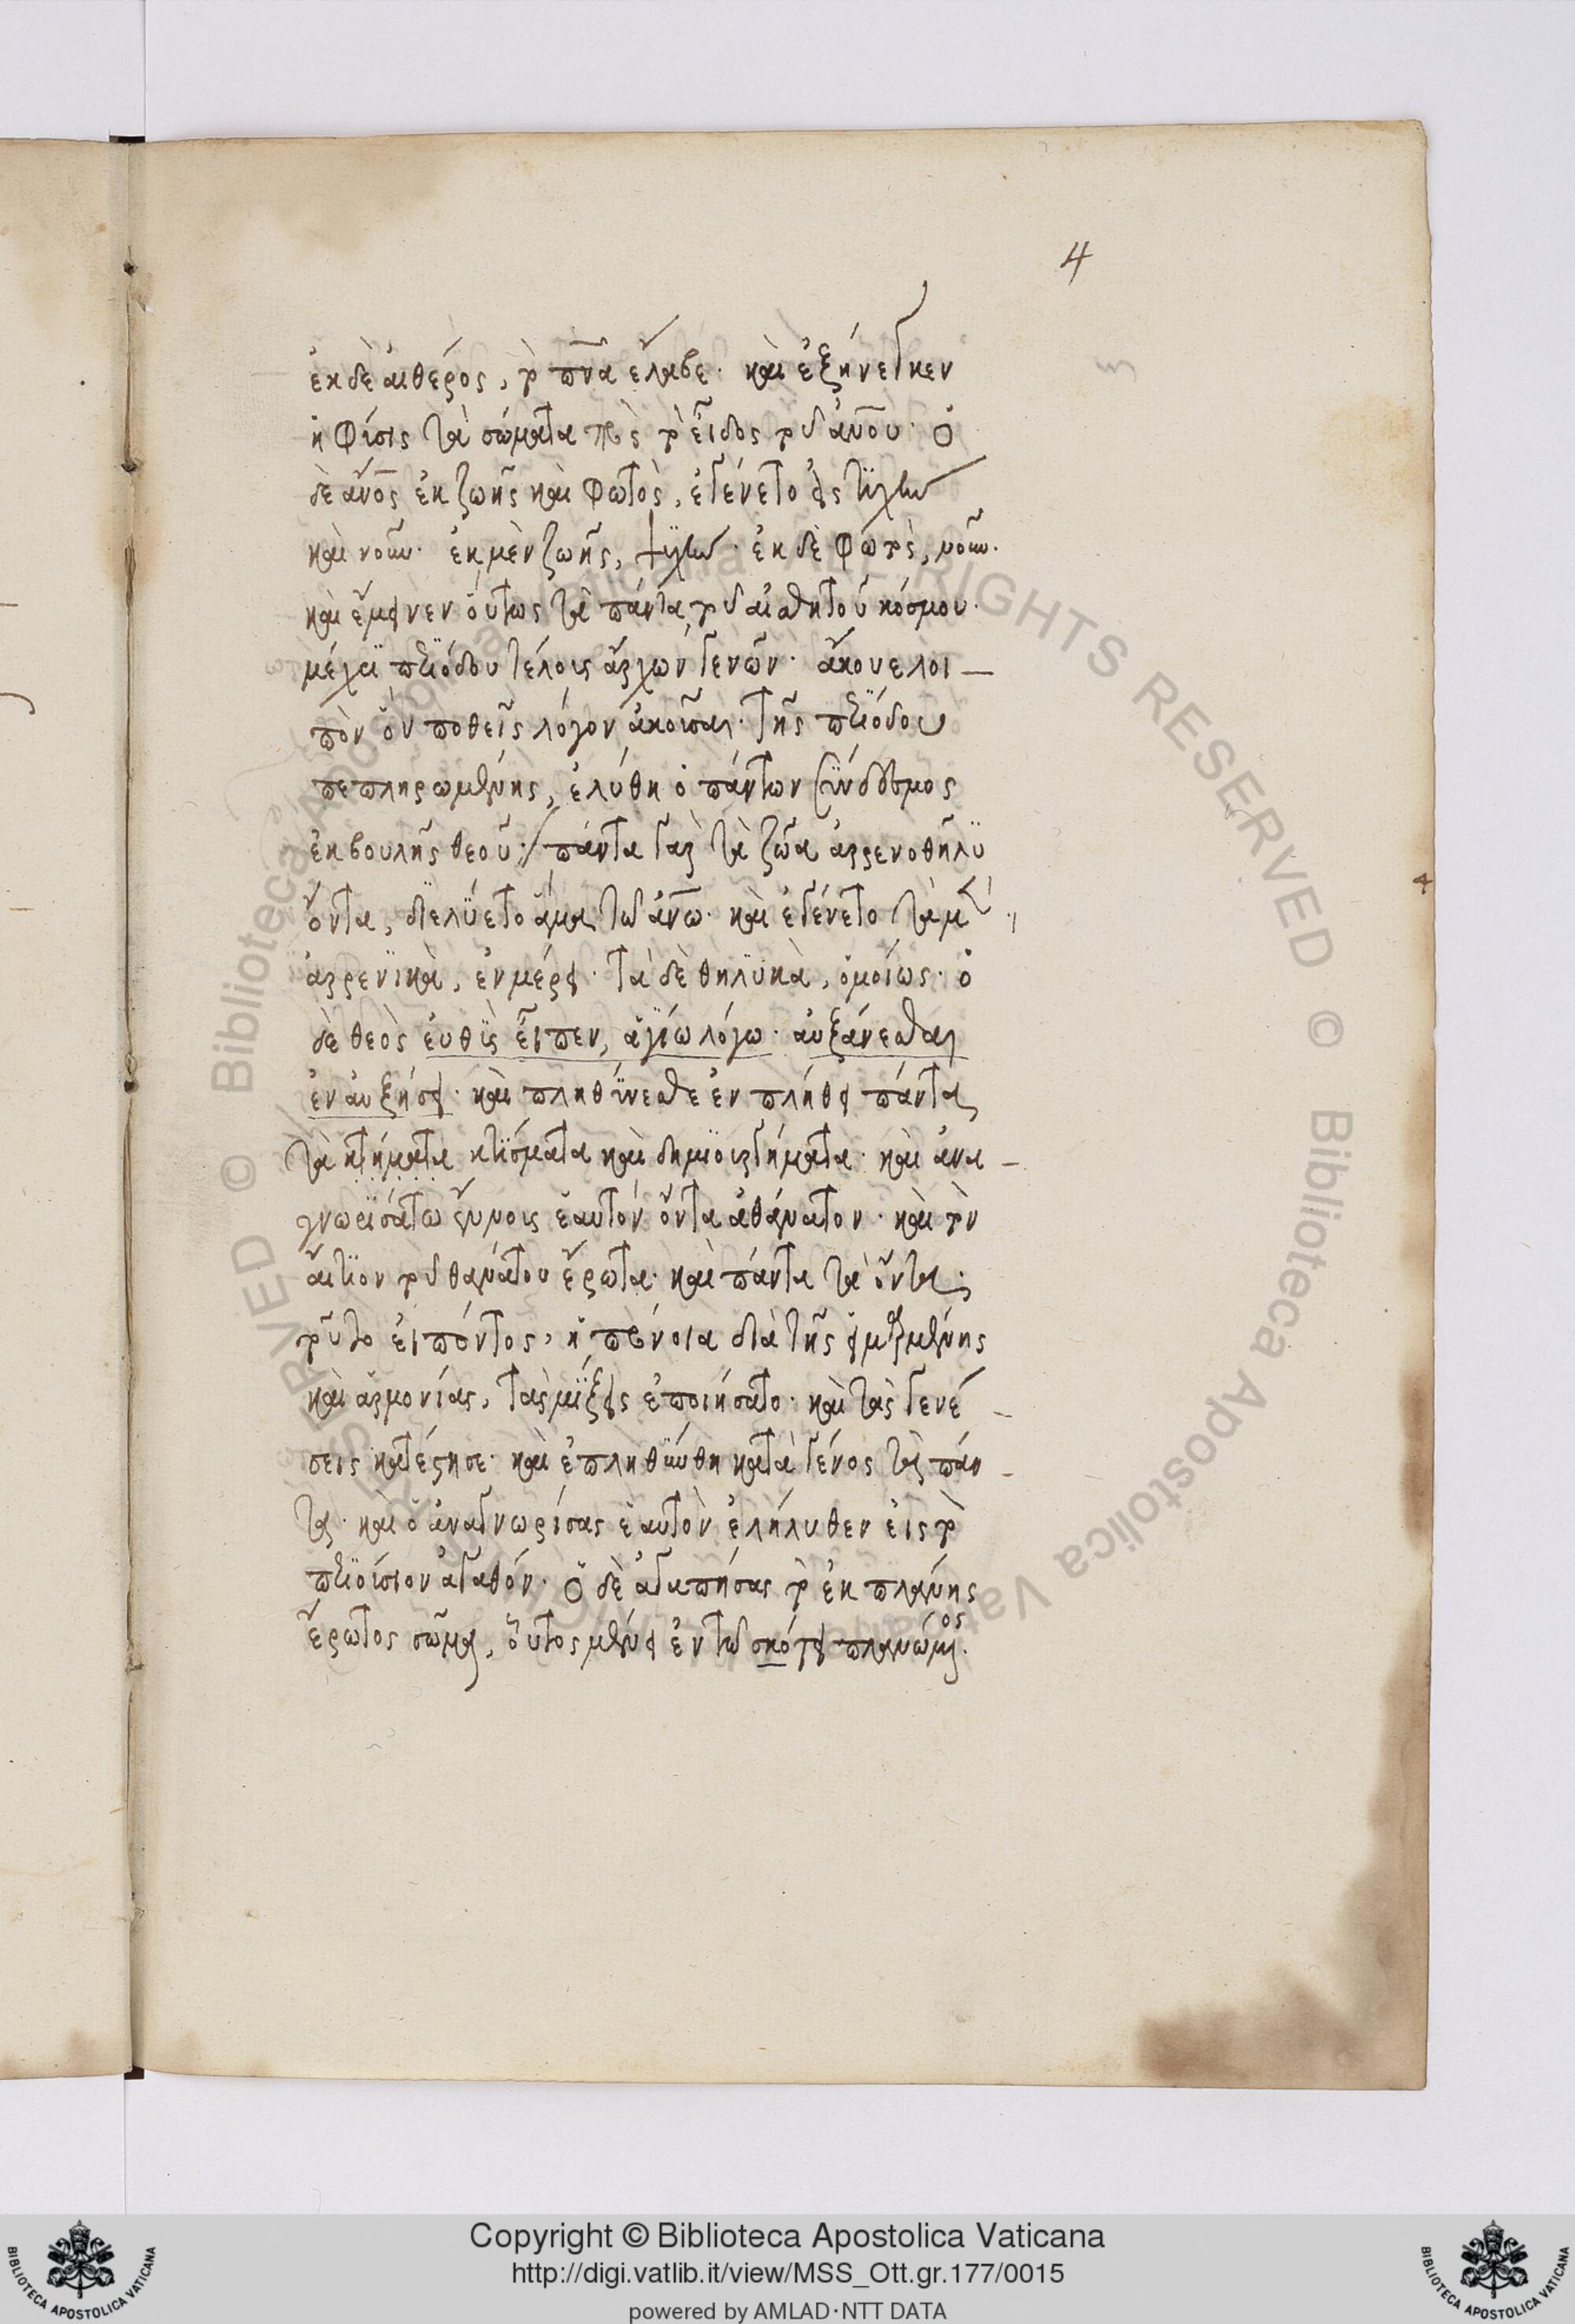 4
ἐκ δὲ αἰθέρος, τὸ πνα ἔλαβε· καὶ ἐξήνεγκεν
ἡ φύσις τὰ σώματα πρὸς τὸ εἶδος τοῦ ἀνου· ὁ
δὲ ἄνος ἐκ ζωῆς καὶ φωτὸς, ἐγένετο εἰς ψυχὴν
καὶ νοῦν· ἐκ μὲν ζωῆς, ψυχὴν· ἐκ δὲ φωτὸς, νοῦν·
καὶ ἔμεινεν οὕτως τὰ πάντα τοῦ αἰσθητοῦ κόσμου·
μέχρι περιόδου τέλους ἀρχῶν γενῶν· ἄκουε λοι-
πὸν ὃν ποθεῖς λόγον ἀκοῦσαι· τῆς περιόδου
πεπληρωμένης, ἐλύθη ὁ πάντων σύνδεσμος
ἐκ βουλῆς θεοῦ· / πάντα γὰρ τὰ ζῶα ἀρρενοθήλυ
ὄντα, διελύετο ἅμα τῶ ἀνω· καὶ ἐγένετο τὰ μὲν
ἀρρενικὰ, ἐν μέρει· τὰ δὲ θηλυκὰ, ὁμοίως· ὁ
δὲ θεὸς εὐθὺς εἶπεν, ἁγίω λόγω· αὐξάνεσθαι
ἐν αὐξήσει· καὶ πληθύνεσθε ἐν πλήθει πάντα
τὰ κτήματα κτίσματα καὶ δημιουργήματα· καὶ ἀνα-
γνωρισάτω ἔννους ἑαυτὸν ὄντα ἀθάνατον· καὶ τὸν
αἴτιον τοῦ θανάτου ἔρωτα· καὶ πάντα τὰ ὄντα·
τοῦτο εἰπόντος, ἡ πρόνοια διὰ τῆς εἱμαρμένης
καὶ ἁρμονίας, τὰς μίξεις ἐποιήσατο· καὶ τὰς γενέ-
σεις κατέστησε· καὶ ἐπληθύνθη κατὰ γένος τὰ πάν-
τα· καὶ ὁ ἀναγνωρίσας ἑαυτὸν ἐλήλυθεν εἰς τὸ
περιούσιον ἀγαθόν· ὁ δὲ ἀγαπήσας τὸ ἐκ πλάνης
ἔρωτος σῶμα, οὗτος μένει ἐν τῶ σκότει πλανώμενος·
4
Copyright © Biblioteca Apostolica Vaticana
http://digi.vatlib.it/view/MSS_Ott.gr.177/0015
powered by AMLAD·NTT DATA
BIBLIOTECA APOSTOLICA VATICANA
BIBLIOTECA APOSTOLICA VATICANA